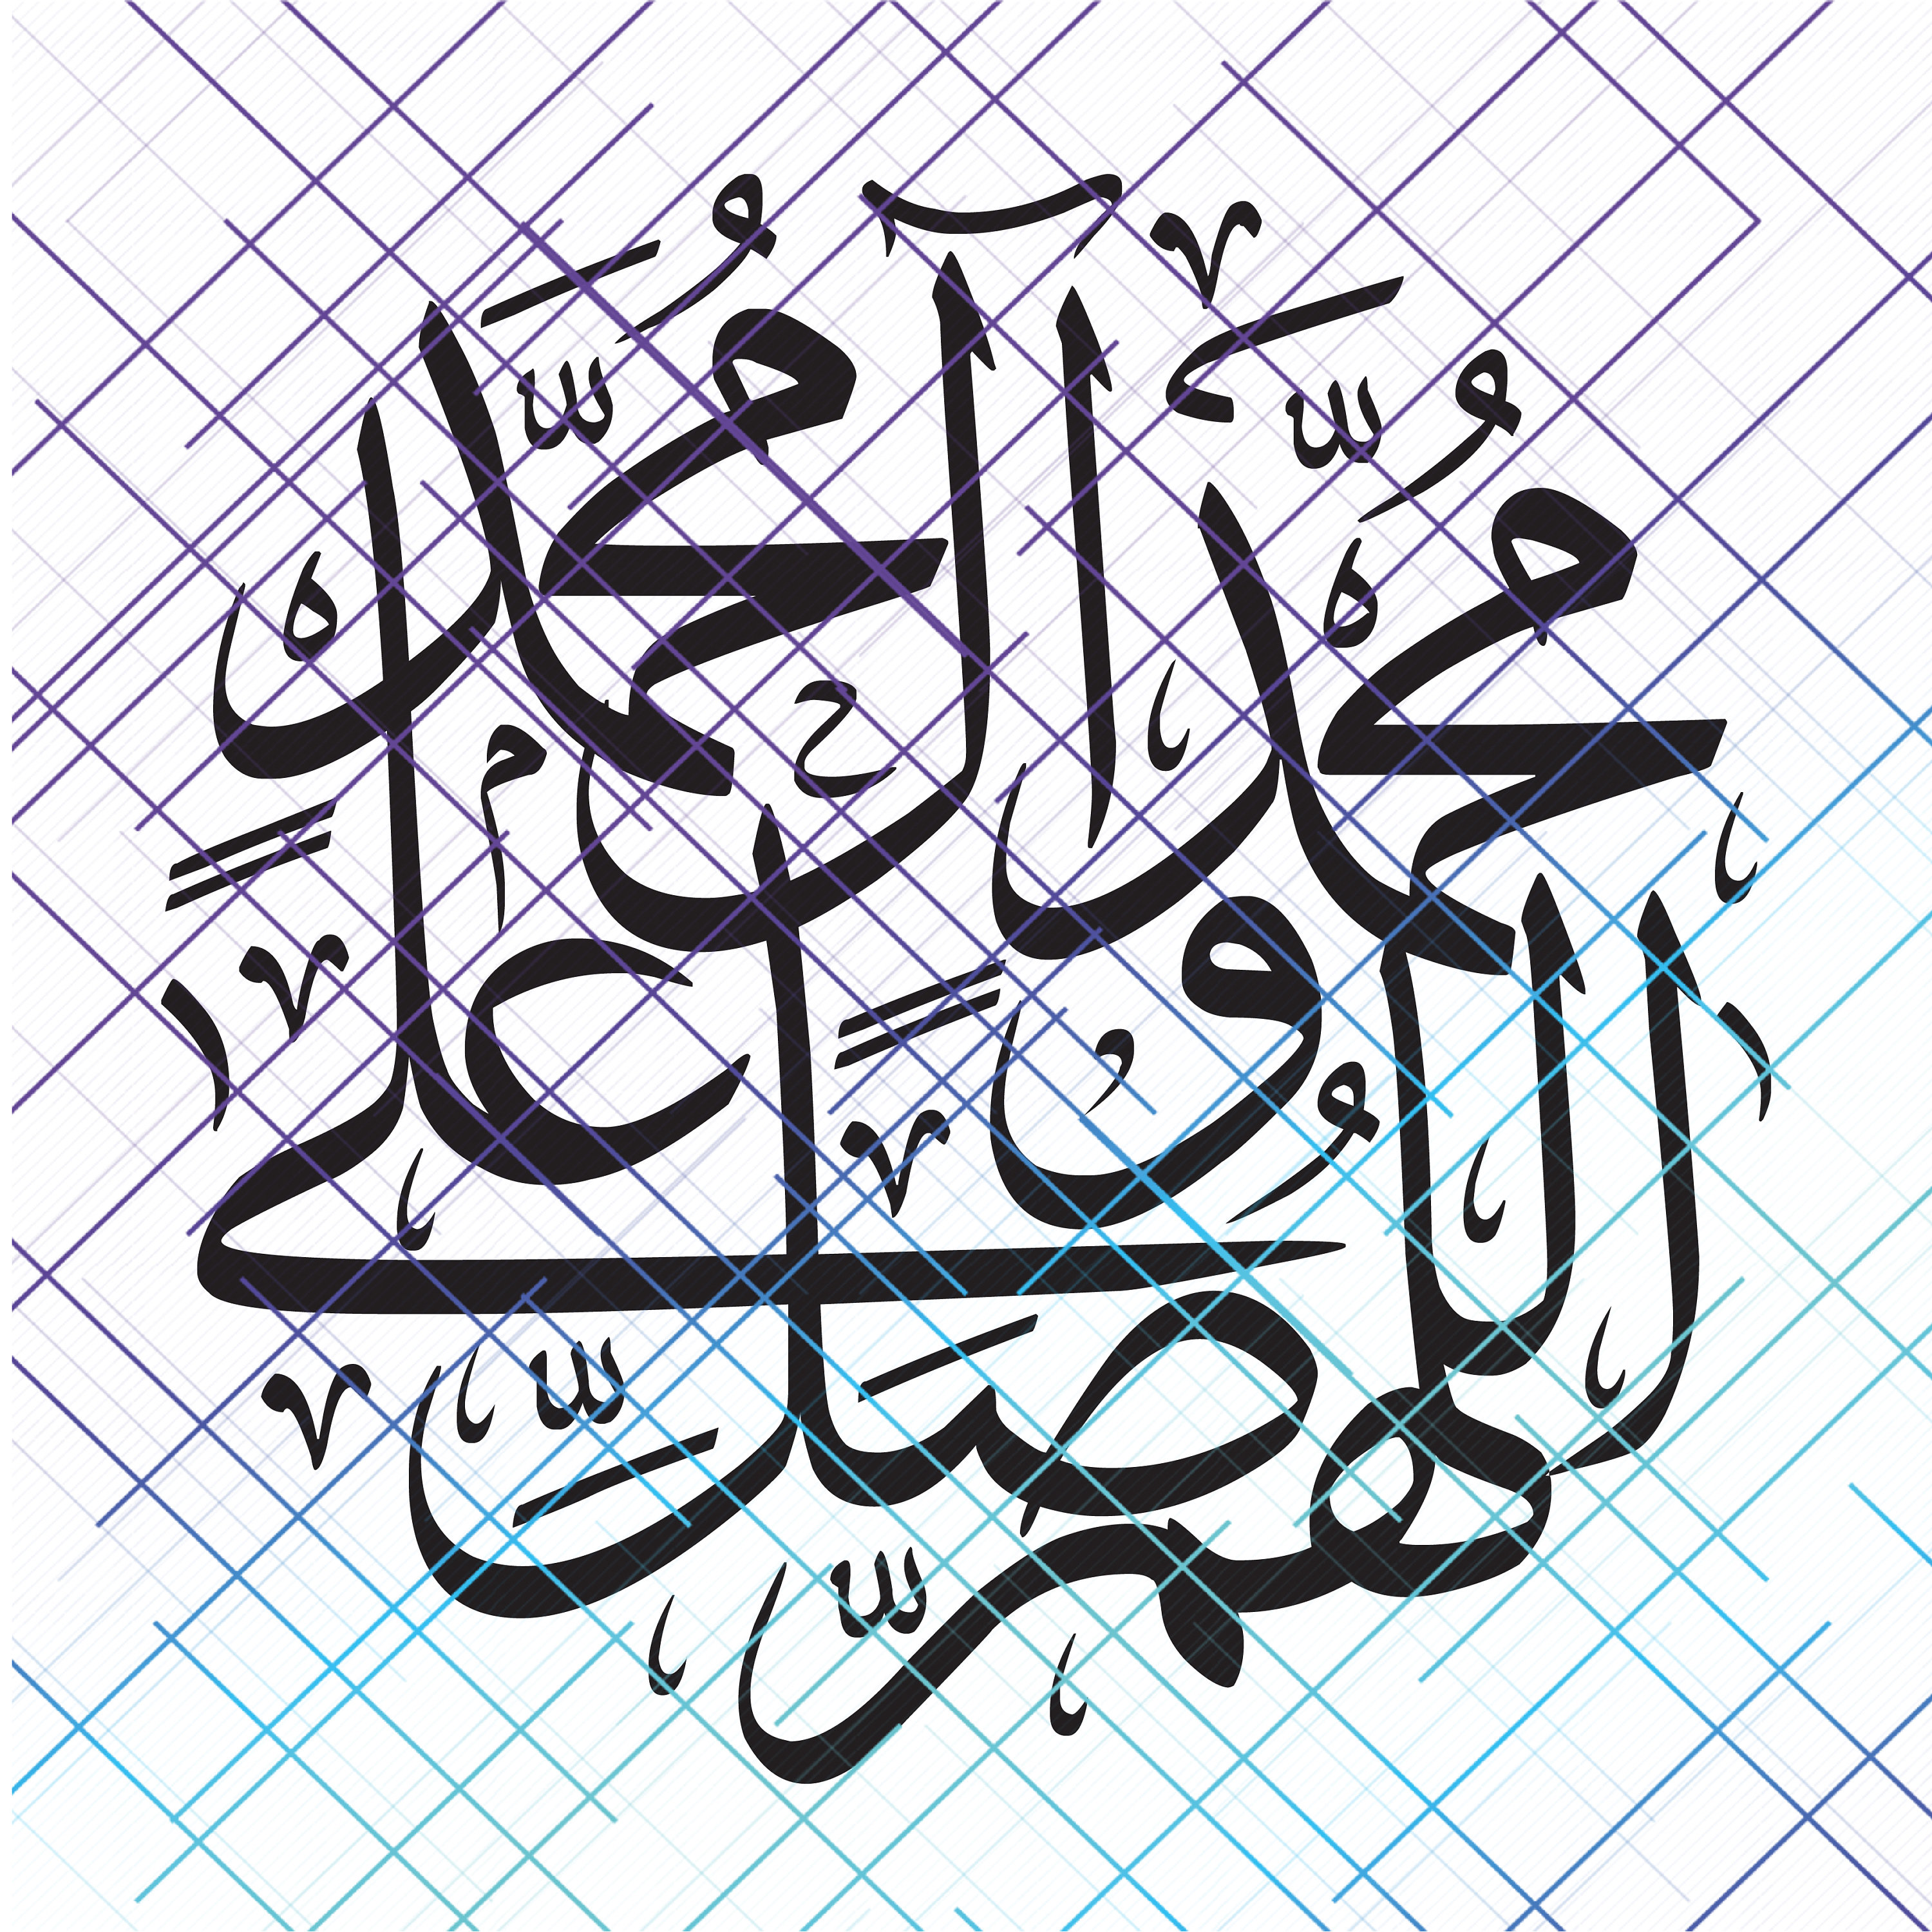 اللهم صل على
محمد و آل محمد